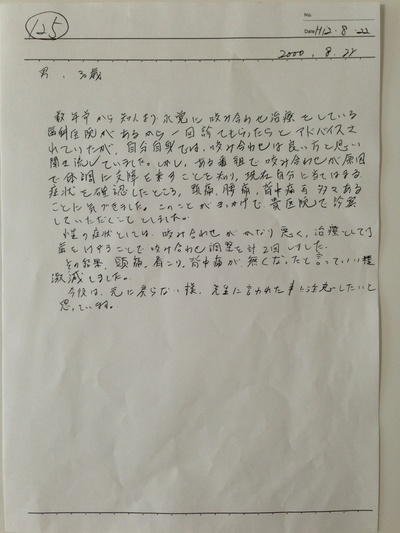 125
No.
Date H12・8・22
2000.8.22
男、30歳
数年前から知人より氷見に咬み合わせ治療をしている
歯科医院があるから一回診てもらったらとアドバイスさ
れていたが、自分自身では、咬み合わせは良い方と思い
聞き流していました。しかし、ある番組で咬み合わせが原因
で体調に支障を来すことを知り、現在自分に当てはまる
症状を確認したところ、頭痛、腰痛、背中痛等多々ある
ことに気づきました。このことがきっかけで貴医院で診察
していただくことにしました。
小生の症状としては、咬み合わせがかなり悪く、治療として
歯をけずることで咬み合わせ調整を計2回しました。
その結果、頭痛、肩こり、背中痛が無くなったと言っていい程
激減しました。
今後は、元に戻らない様、先生に言われた事に注意したいと
思っています。